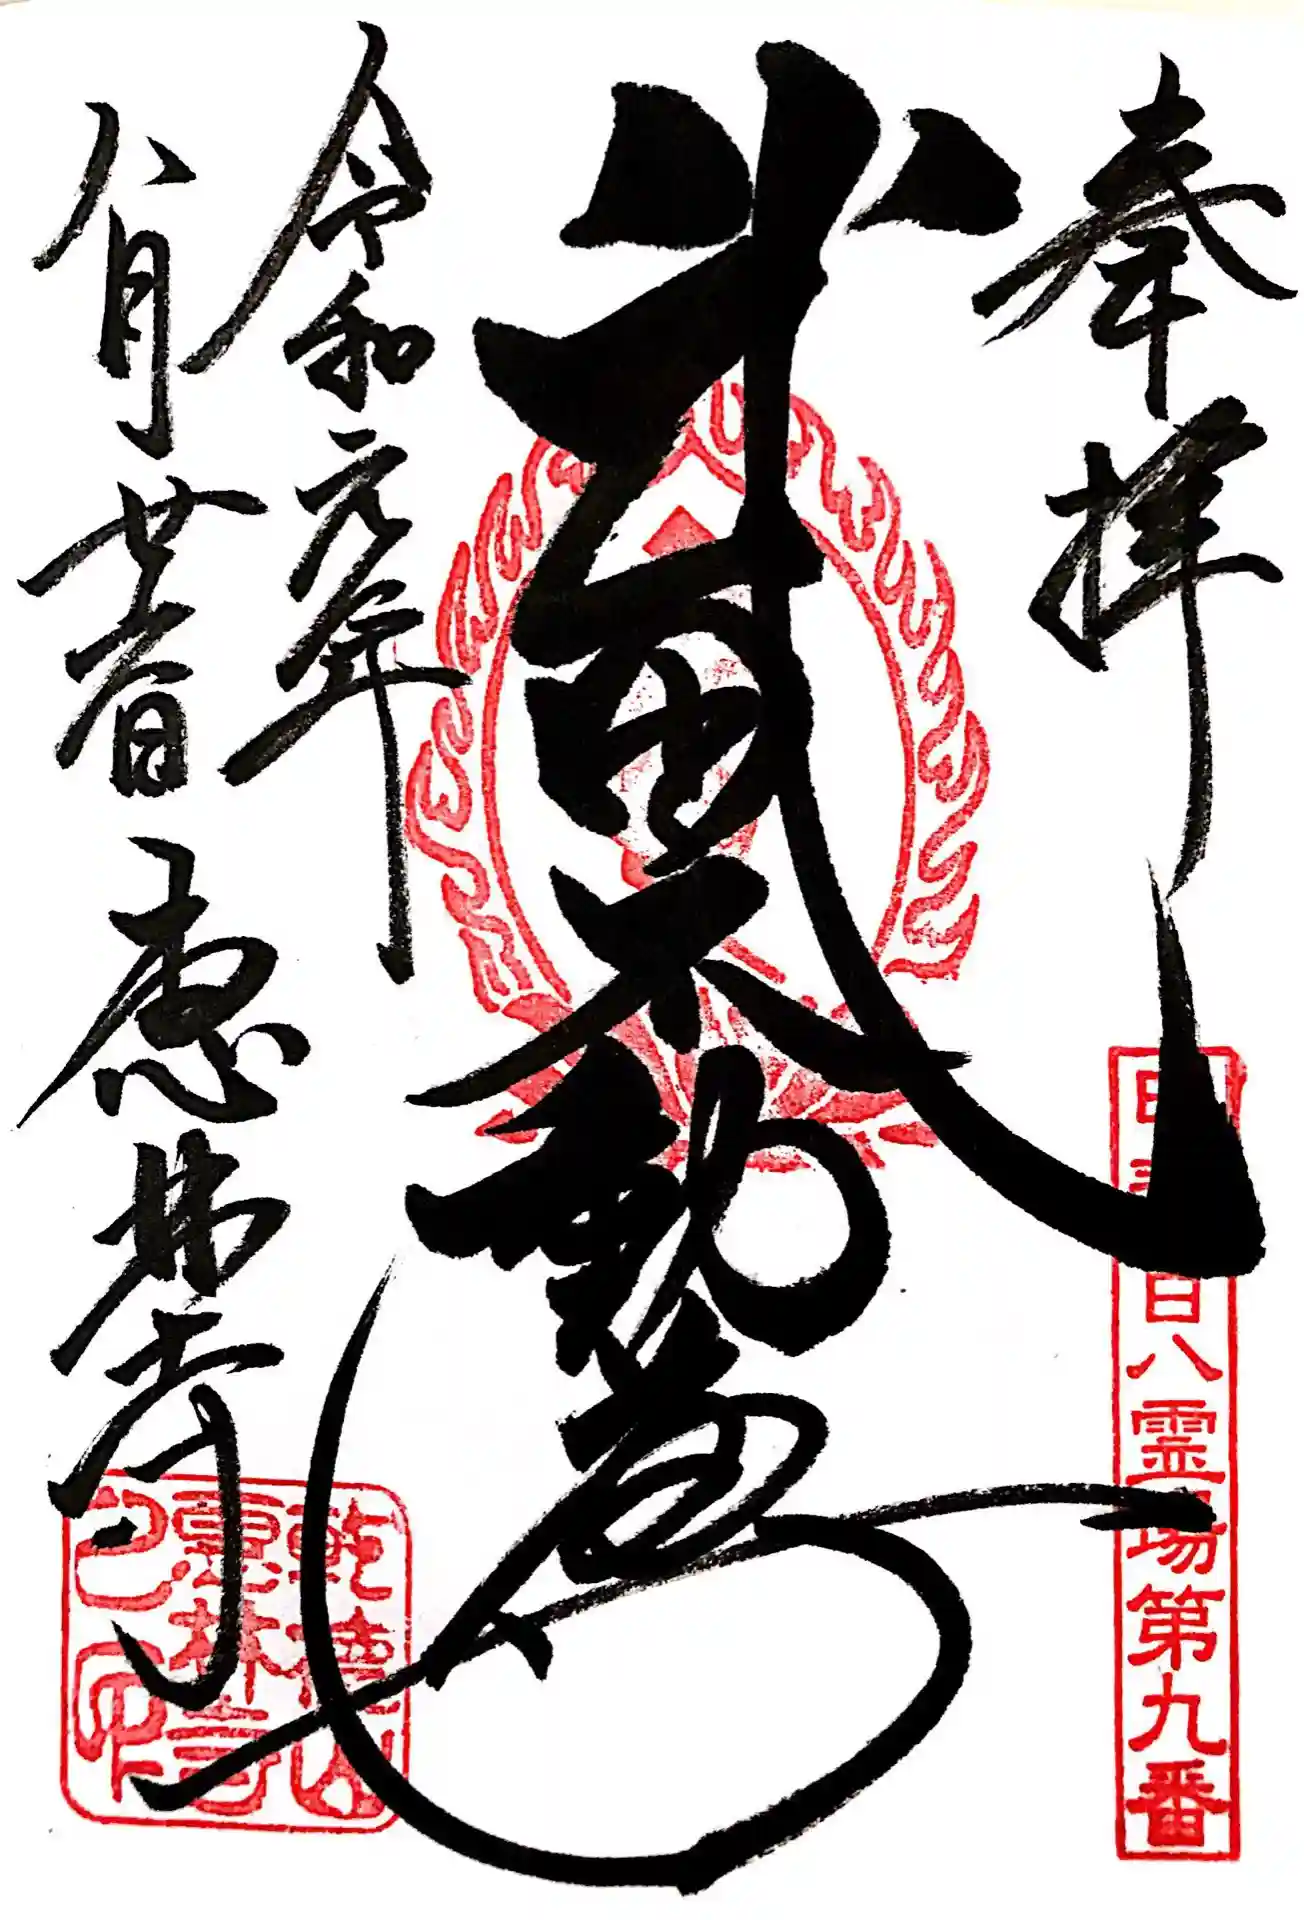 奉拝
百八霊場第九番
武田不動尊
令和元年
八月廿五日
恵林寺
乾徳山
恵林寺